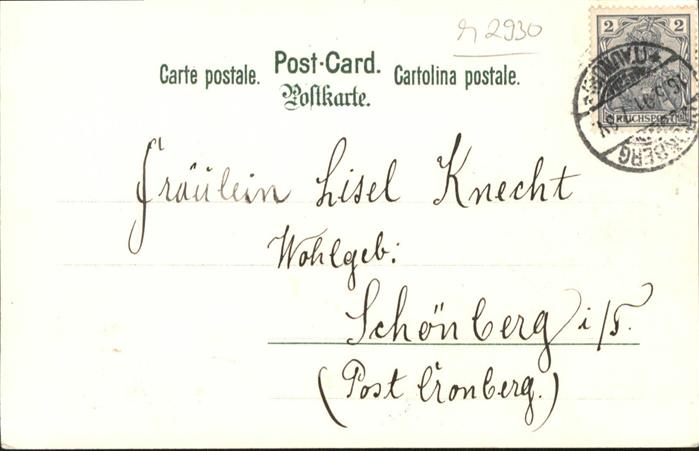 n 2930
Post-Card.
Carte postale. Cartolina postale.
Postkarte.
2 2
REICHSPOST
Fräulein Lisel Knecht
Wohlgeb:
Schönberg i/T.
(Post Cronberg.)